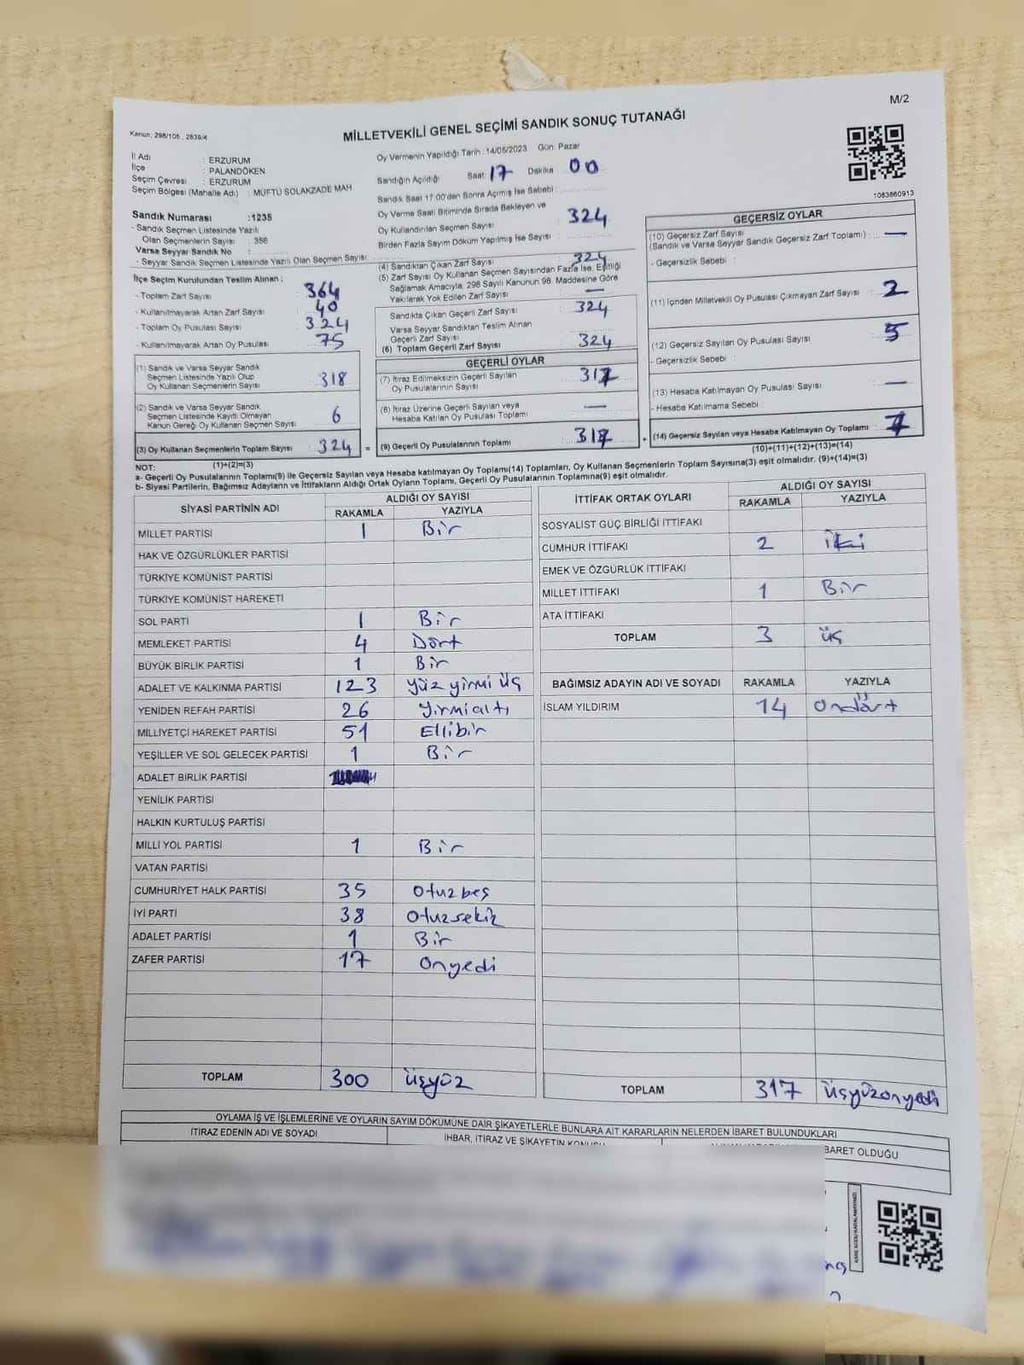 M/2
Kanun: 298/105, 2839/4
MİLLETVEKİLİ GENEL SEÇİMİ SANDIK SONUÇ TUTANAĞI
İl Adı : ERZURUM
İlçe : PALANDÖKEN
Seçim Çevresi : ERZURUM
Seçim Bölgesi (Mahalle Adı) : MÜFTÜ SOLAKZADE MAH
Sandık Numarası :1235
- Sandık Seçmen Listesinde Yazılı
Olan Seçmenlerin Sayısı : 356
Varsa Seyyar Sandık No :
- Seyyar Sandık Seçmen Listesinde Yazılı Olan Seçmen Sayısı :
Oy Vermenin Yapıldığı Tarih : 14/05/2023 Gün: Pazar
Sandığın Açıldığı : Saat 17 Dakika 00
Sandık Saat 17:00'den Sonra Açılmış İse Sebebi :
Oy Verme Saati Bitiminde Sırada Bekleyen ve
Oy Kullandırılan Seçmen Sayısı 324
Birden Fazla Sayım Döküm Yapılmış İse Sayısı
1083860913
İlçe Seçim Kurulundan Teslim Alınan :
- Toplam Zarf Sayısı 364
- Kullanılmayarak Artan Zarf Sayısı 40
- Toplam Oy Pusulası Sayısı 324
- Kullanılmayarak Artan Oy Pusulası 75
(1) Sandık ve Varsa Seyyar Sandık
Seçmen Listesinde Yazılı Olup
Oy Kullanan Seçmenlerin Sayısı 318
(2) Sandık ve Varsa Seyyar Sandık
Seçmen Listesinde Kayıtlı Olmayan
Kanun Gereği Oy Kullanan Seçmen Sayısı 6
(3) Oy Kullanan Seçmenlerin Toplam Sayısı 324 =
(1)+(2)=(3)
(4) Sandıktan Çıkan Zarf Sayısı 324
(5) Zarf Sayısı Oy Kullanan Seçmen Sayısından Fazla İse, Eşitliği
Sağlamak Amacıyla, 298 Sayılı Kanunun 98. Maddesine Göre
Yakılarak Yok Edilen Zarf Sayısı —
Sandıkta Çıkan Geçerli Zarf Sayısı 324
Varsa Seyyar Sandıktan Teslim Alınan
Geçerli Zarf Sayısı
(6) Toplam Geçerli Zarf Sayısı 324
GEÇERLİ OYLAR
(7) İtiraz Edilmeksizin Geçerli Sayılan
Oy Pusulalarının Sayısı 317
(8) İtiraz Üzerine Geçerli Sayılan veya
Hesaba Katılan Oy Pusulası Toplamı —
(9) Geçerli Oy Pusulalarının Toplamı 317 +
GEÇERSİZ OYLAR
(10) Geçersiz Zarf Sayısı
(Sandık ve Varsa Seyyar Sandık Geçersiz Zarf Toplamı) : —
- Geçersizlik Sebebi :
(11) İçinden Milletvekili Oy Pusulası Çıkmayan Zarf Sayısı 2
(12) Geçersiz Sayılan Oy Pusulası Sayısı 5
- Geçersizlik Sebebi :
(13) Hesaba Katılmayan Oy Pusulası Sayısı —
- Hesaba Katılmama Sebebi :
(14) Geçersiz Sayılan veya Hesaba Katılmayan Oy Toplamı 7
(10)+(11)+(12)+(13)=(14)
NOT:
a- Geçerli Oy Pusulalarının Toplamı(9) ile Geçersiz Sayılan veya Hesaba katılmayan Oy Toplamı(14) Toplamları, Oy Kullanan Seçmenlerin Toplam Sayısına(3) eşit olmalıdır. (9)+(14)=(3)
b- Siyasi Partilerin, Bağımsız Adayların ve İttifakların Aldığı Ortak Oyların Toplamı, Geçerli Oy Pusulalarının Toplamına(9) eşit olmalıdır.
SİYASİ PARTİNİN ADI ALDIĞI OY SAYISI
RAKAMLA YAZIYLA
MİLLET PARTİSİ 1 Bir
HAK VE ÖZGÜRLÜKLER PARTİSİ
TÜRKİYE KOMÜNİST PARTİSİ
TÜRKİYE KOMÜNİST HAREKETİ
SOL PARTİ 1 Bir
MEMLEKET PARTİSİ 4 Dört
BÜYÜK BİRLİK PARTİSİ 1 Bir
ADALET VE KALKINMA PARTİSİ 123 Yüz yirmi üç
YENİDEN REFAH PARTİSİ 26 Yirmialtı
MİLLİYETÇİ HAREKET PARTİSİ 51 Ellibir
YEŞİLLER VE SOL GELECEK PARTİSİ 1 Bir
ADALET BİRLİK PARTİSİ
YENİLİK PARTİSİ
HALKIN KURTULUŞ PARTİSİ
MİLLİ YOL PARTİSİ 1 Bir
VATAN PARTİSİ
CUMHURİYET HALK PARTİSİ 35 Otuzbeş
İYİ PARTİ 38 Otuzsekiz
ADALET PARTİSİ 1 Bir
ZAFER PARTİSİ 17 Onyedi
TOPLAM 300 üçyüz
İTTİFAK ORTAK OYLARI ALDIĞI OY SAYISI
RAKAMLA YAZIYLA
SOSYALİST GÜÇ BİRLİĞİ İTTİFAKI
CUMHUR İTTİFAKI 2 iki
EMEK VE ÖZGÜRLÜK İTTİFAKI
MİLLET İTTİFAKI 1 Bir
ATA İTTİFAKI
TOPLAM 3 üç
BAĞIMSIZ ADAYIN ADI VE SOYADI RAKAMLA YAZIYLA
İSLAM YILDIRIM 14 Ondört
TOPLAM 317 üçyüzonyedi
OYLAMA İŞ VE İŞLEMLERİNE VE OYLARIN SAYIM DÖKÜMÜNE DAİR ŞİKAYETLERLE BUNLARA AİT KARARLARIN NELERDEN İBARET BULUNDUKLARI
İTİRAZ EDENİN ADI VE SOYADI İHBAR, İTİRAZ VE ŞİKAYETİN KONUSU BARET OLDUĞU